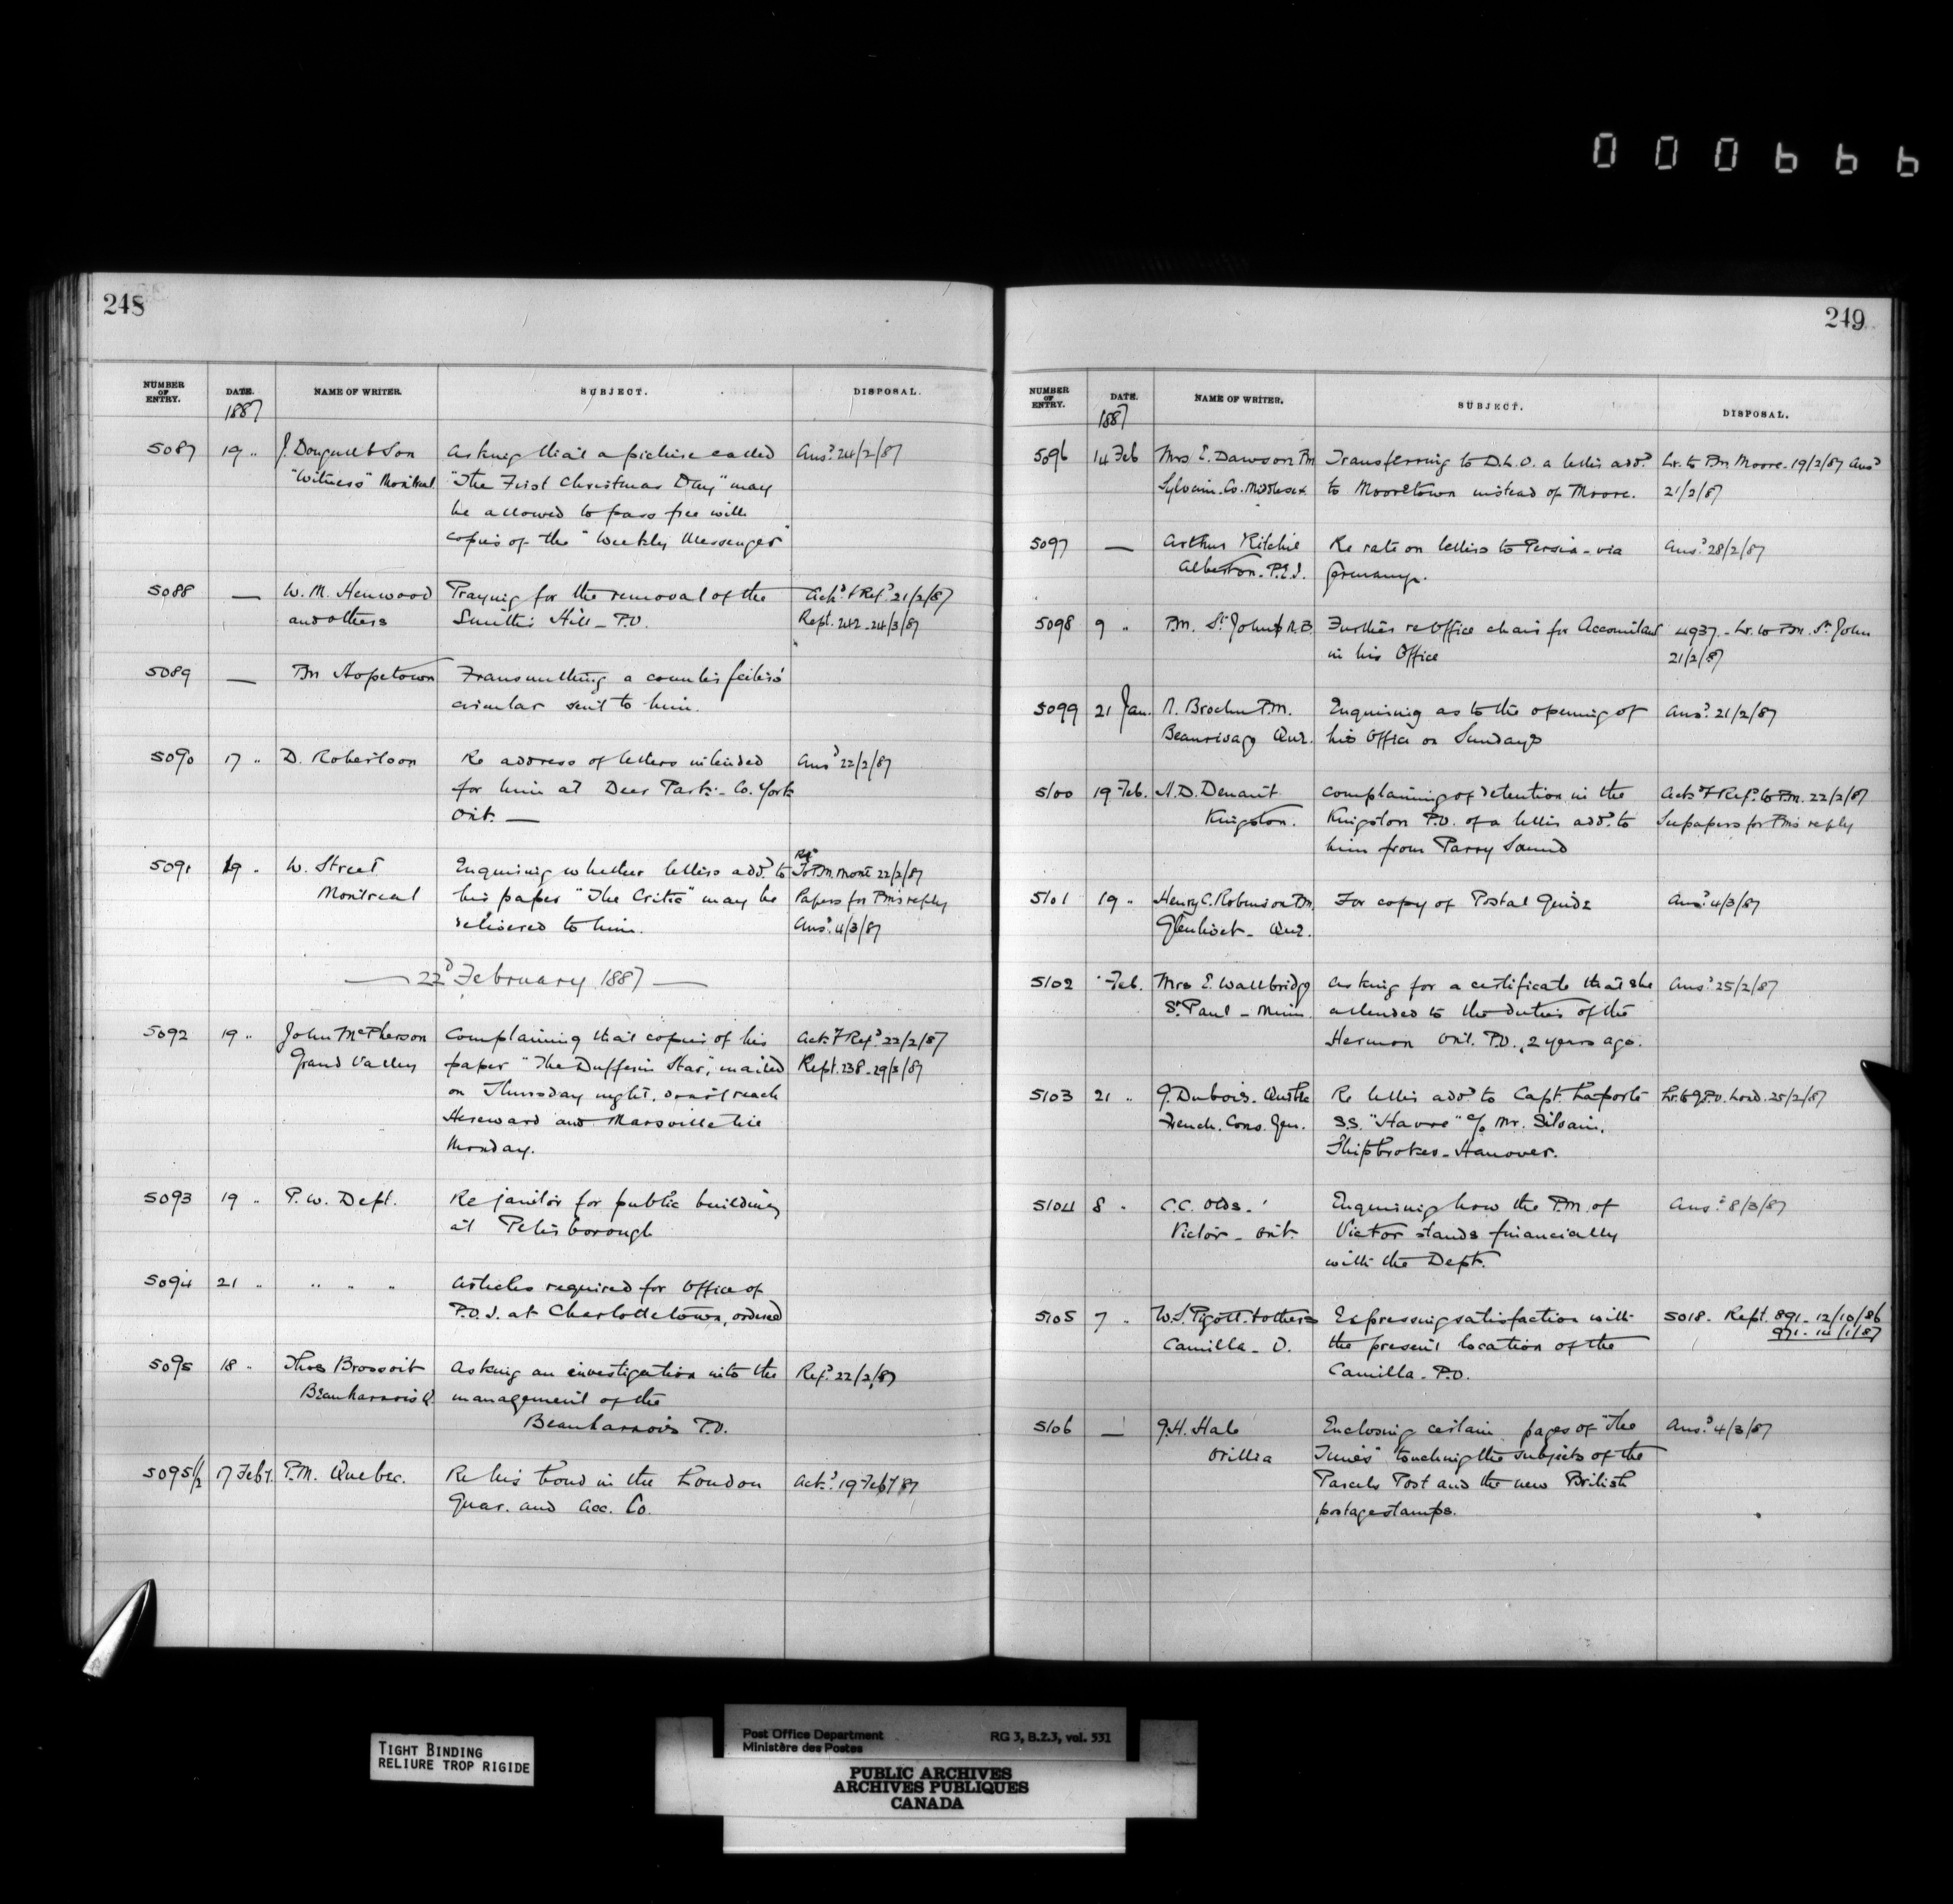 000666
248
NUMBER OF ENTRY. DATE. NAME OF WRITER. SUBJECT. DISPOSAL.
1887
5087 19 " J. Dougall & Son Asking that a picture called Ansd 24/2/87
"Witness" Montreal "The First Christmas Day" may
be allowed to pass free with
copies of the "Weekly Messenger"
5088 — W. M. Henwood Praying for the removal of the Ackd & Refd 21/2/87
and others Smith's Hill - P.O. Rept. 242 - 24/3/87
5089 — Pm Hopetown Transmitting a counterfeiters'
circular sent to him.
5090 17 " D. Robertson Re address of letters intended Ansd 22/2/87
for him at Deer Park - Co. York
Ont. —
5091 19 " W. Street Enquiring whether letters addd to Refd To P.M. Mont 22/2/87
Montreal his paper "The Critic" may be Papers for Pm's reply
delivered to him. Ansd 4/3/87
— 22d February 1887 —
5092 19 " John McPherson Complaining that copies of his Ackd & Refd 22/2/87
Grand Valley paper "The Dufferin Star", mailed Rept. 238 - 29/3/87
on Thursday night, don't reach
Hereward and Marsville till
Monday.
5093 19 " P. W. Dept. Re janitor for public building
at Peterborough
5094 21 " " " " Articles required for Office of
P.O.I. at Charlottetown, ordered
5095 18 " Thos Brossoit Asking an investigation into the Refd 22/2/87
Beauharnois Q. management of the
Beauharnois P.O.
5095½ 17 Feby. P.M. Quebec. Re his bond in the London Ackd 19 Feby 87
Guar. and Acc. Co.
249
NUMBER OF ENTRY. DATE. NAME OF WRITER. SUBJECT. DISPOSAL.
1887
5096 14 Feb Mrs E. Dawson Pm Transferring to D.L.O. a letter addd Lr. to Pm Moore - 19/2/87 Ansd
Sylvain. Co. Middlesex to Mooretown instead of Moore. 21/2/87
5097 — Arthur Ritchie Re rate on letters to Persia - via Ansd 28/2/87
Alberton. P.E.I. Germany.
5098 9 " P.M. St. John N.B. Further re Office chair for Accountant 4937 - Lr. to Pm. St. John
in his Office 21/2/87
5099 21 Jan. Brochu P.M. Enquiring as to the opening of Ansd 21/2/87
Beaurivage Que. his Office on Sundays
5100 19 Feb. H. D. Denant Complaining of detention in the Ackd & Refd to P.m. 22/2/87
Kingston. Kingston P.O. of a letter addd to See papers for Pm's reply
him from Parry Sound
5101 19 " Henry C. Robinson Pm. For copy of Postal Guide Ansd 4/3/87
Glenlivet - Que.
5102 " Feb. Mrs E. Wallbridge Asking for a certificate that she Ansd 25/2/87
St. Paul - Minn. attended to the duties of the
Hermon Ont. P.O., 2 years ago.
5103 21 " G. Dubois. Re letter addd to Capt. Laporte Lr. to G.P.O. Lond. 25/2/87
French. Cons. Gen. S.S. "Havre" c/o Mr. Silvain,
Shipbroker - Hanover.
5104 8 " C.C. Olds. Enquiring how the P.M. of Ansd 8/3/87
Victor - Ont. Victor stands financially
with the Dept.
5105 7 " W. S. Pigott & others Expressing satisfaction with 5018. Rept. 891 - 12/10/86
Camilla - O. the present location of the 971 - 14/1/87
Camilla - P.O.
5106 — G. H. Hale Enclosing certain pages of "The Ansd 4/3/87
Orillia Times" touching the subjects of the
Parcels Post and the new British
postage stamps.
TIGHT BINDING
RELIURE TROP RIGIDE
Post Office Department RG 3, B.2.3, vol. 531
Ministère des Postes
PUBLIC ARCHIVES
ARCHIVES PUBLIQUES
CANADA